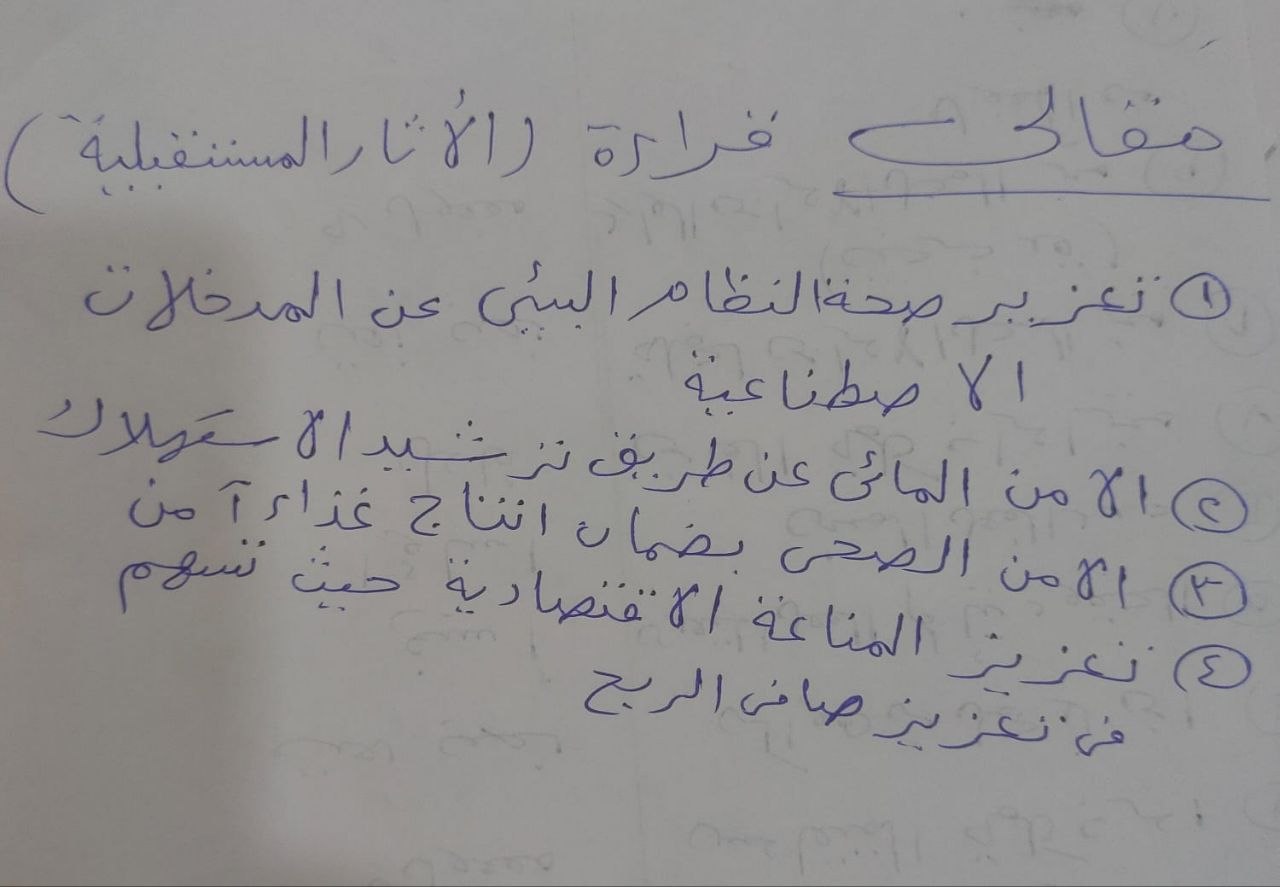 مقالى قراءة (الأثار المستقبلية)
① تعزيز صحة النظام البيئي عن المدخلات
الاصطناعية
② الامن المائى عن طريق ترشيد الاستهلاك
③ الامن الصحى بضمان انتاج غذاء آمن
④ تعزيز المناعة الاقتصادية حيث تسهم
فى تعزيز صافى الربح